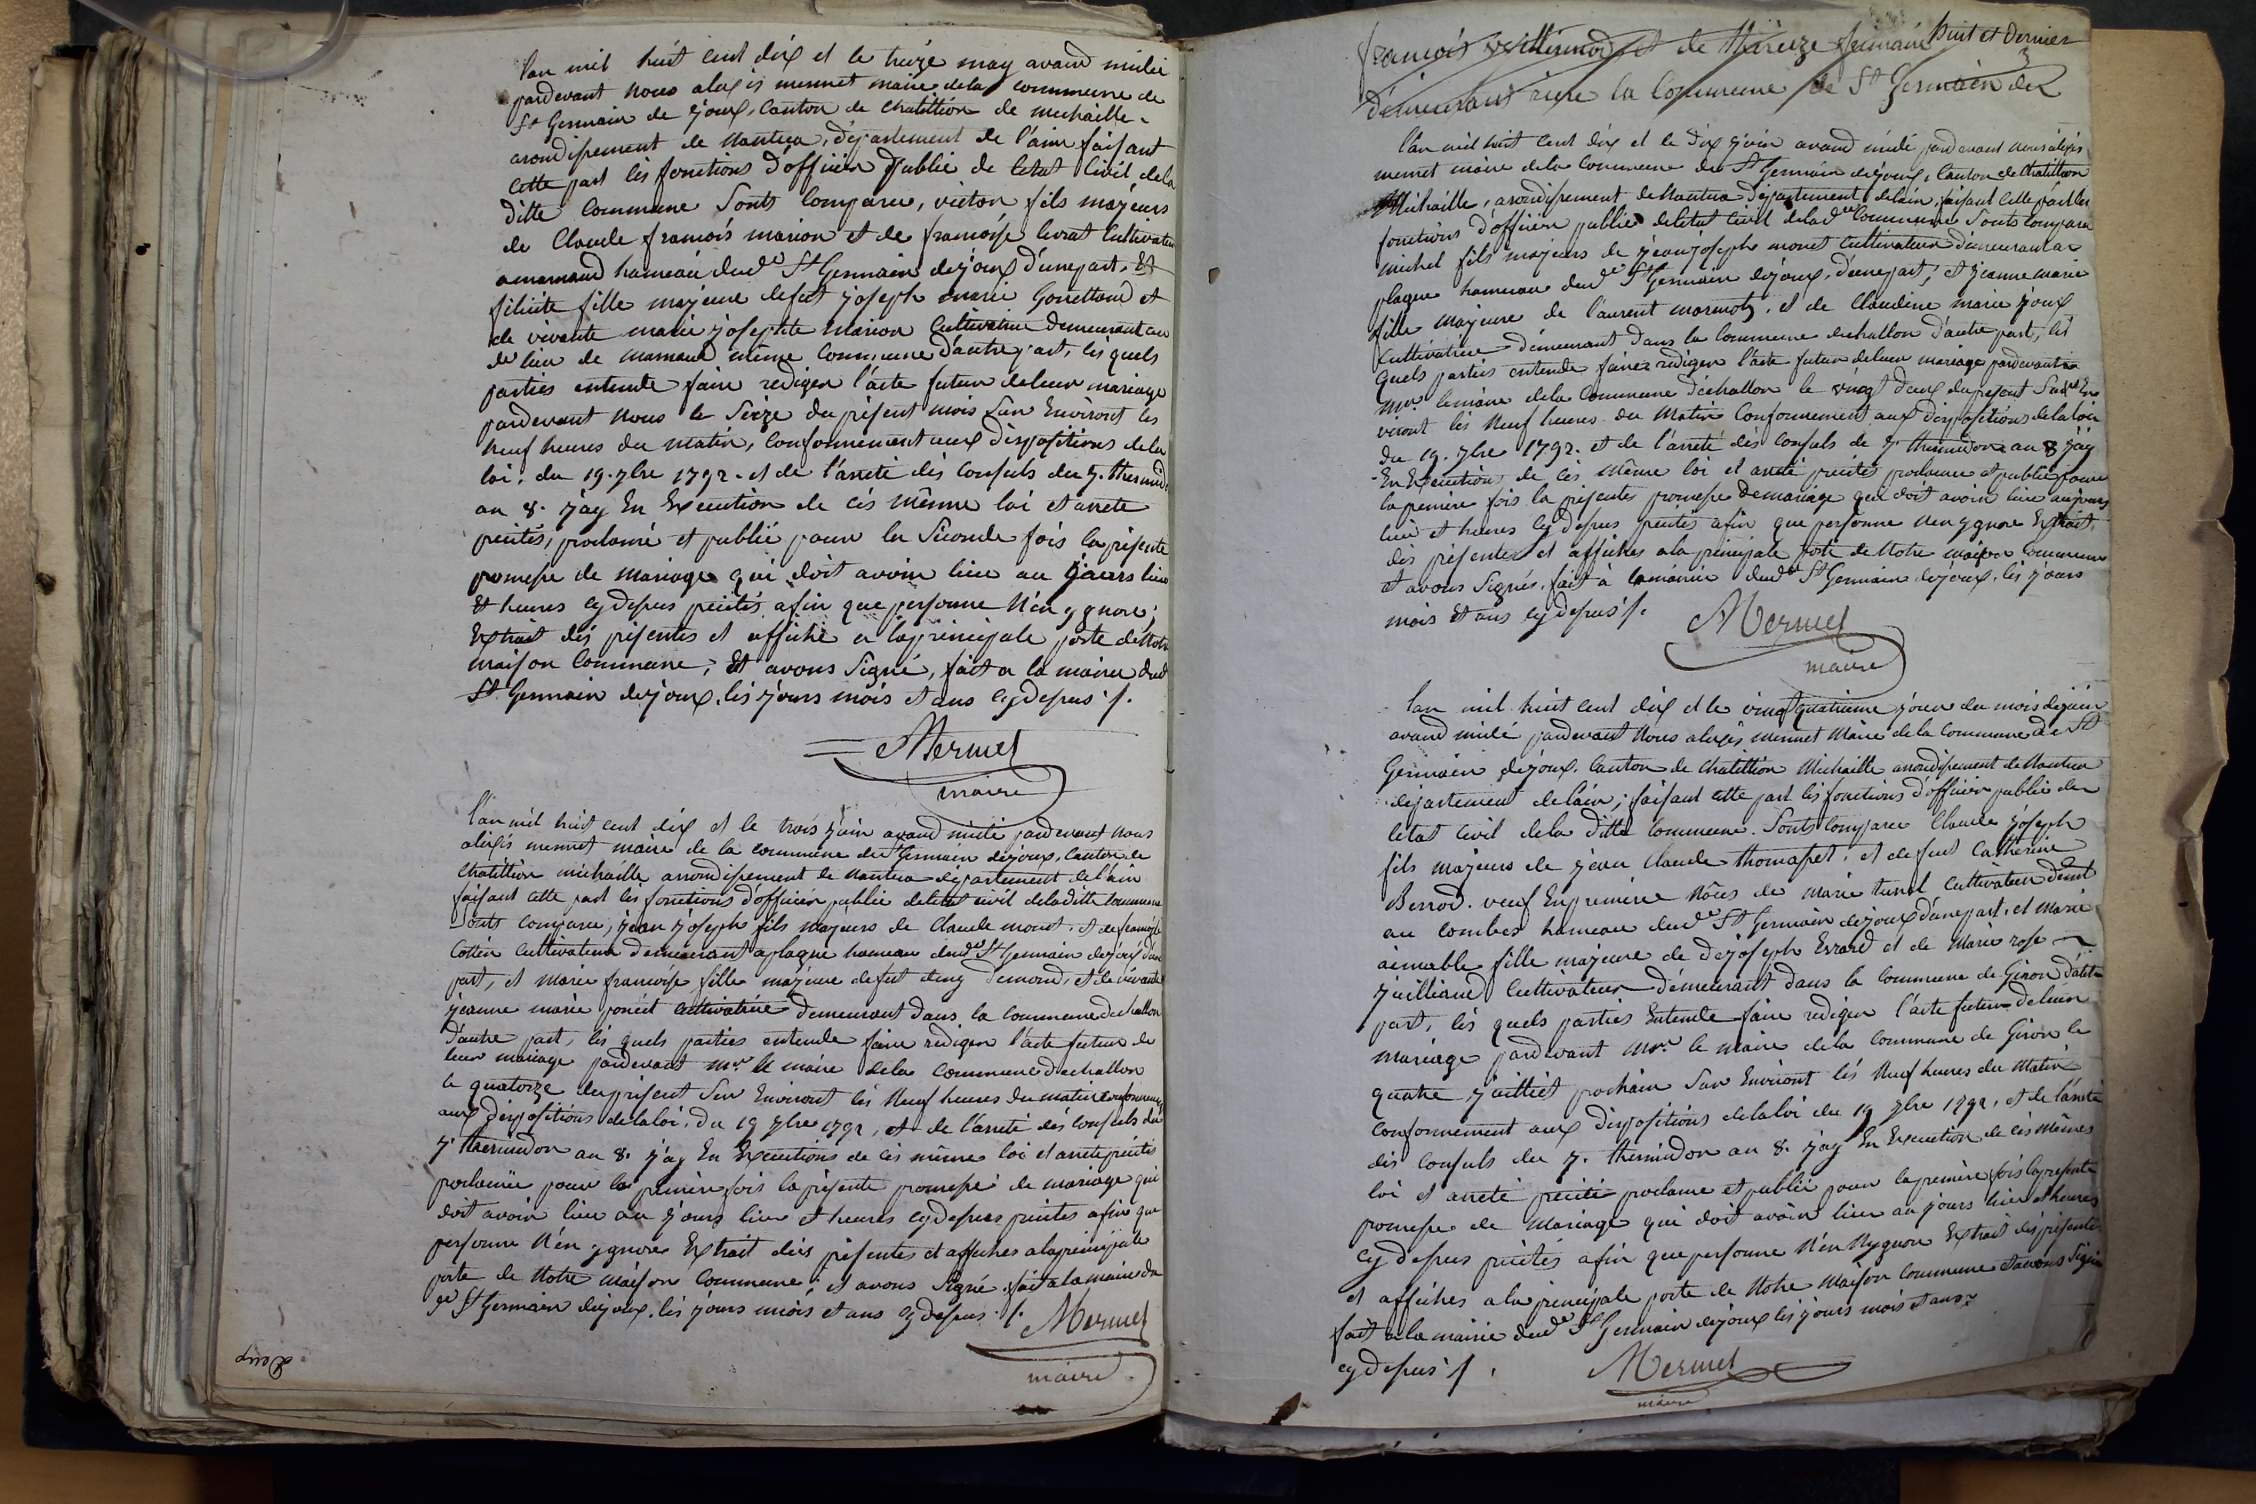 l'an mil huit cent dix et le treize may avand midi
pardevant nous alexis mermet maire dela commune de
St Germain de joux, Canton de chatillion de michaille
arondisement de Nantua, département de l'ain faisant
cette part les fonctions d'officier public de letat Civil dela
ditte Commune Sonts Comparu, victor fils majeurs
de Claude françois marion et de françoise livrat Cultivateur
a marnaud hameau dud.e St Germain dejoux d'unepart, Et
filicite fille majeure defut joseph marie Gouilloud et
de vivante marie josephte marion Cultivatrice demeurant au
de lieu de marnaud même Commune d'autre part, les quels
parties entende faire rediger l'acte futur deleur mariage
pardevant nous le Seize du présent mois Sur Environt les
neuf heures du matin, Conformément aux dispositions dela
loi, du 19. 7bre 1792. et de l'arreté dès Consuls du 7. thermid.
an 8. j'ay En Execution de cès même loi et arrete
précités, proclamé et publié pour la Séconde fois la présente
promesse de mariage qui doit avoir lieu au jours lieu
Et heures cy dessus précités afin que personne N'en ygnore,
Extrait dès présentes et affiché a laprincipale porte de Notre
maison Commune; Et avons Signé, fait a la mairie dud
St Germain dejoux, lés jours mois et ans cydessus ./.
Mermet
maire
l'an mil huit cent dix et le trois juin avand midi pardevant nous
alexis mermet maire de la commune de St Germain dejoux, Canton de
Chatillion michaille arrondissement de nantua département de l'ain
faisant cette part lès fonctions d'officier public deletat civil deladitte Commune
Sonts comparu, jean joseph fils majeurs de Claude monet. et de françoise
Cottin Cultivateur demeurant a plagne hameau dud.e St Germain dejoux d'une
part, et marie françoise fille majeure defut deny Emond, et de vivante
jeanne marie poncet Cultivatrice demeurant dans la Commune dechallon
d'autre part, lès quels parties entende faire rédiger l'acte futur de
leur mariage pardevant mr. le maire dela Commune d'echallon
le quatorze duprésent Sur Environt lès Neuf heures du matin conformement
aux dispositions delaloi, du 19 7bre 1792, et de l'arreté dès Consuls du
7. thermidor an 8. j'ay En Executions de cès même loi et arrete précités
proclamé pour la premiere fois la présente promesse de mariage qui
doit avoir lieu au jours lieu et heures cydessus précités afin que
personne N'en ygnore Extrait dès présentes et affiches a laprincipale
porte de Notre maison Commune; et avons Signé fait a la mairie du
ge St Germain dejoux, lès jours mois et ans cydessus ./. Mermet
maire
Deux
françois Vuillermoz et de thereze Germain huit et dernier
demeurant riere la Commune de St Germain de
l'an mil huit cent dix et le dix juin avand midi pardevant nous alexis
mermet maire dela Commune de St Germain dejoux, Canton de Chatillion
Michaille, arondissement de Nantua département delain, faisant cette part lès
fonctions d'officier public deletat Civil delad.e Commune Sonts comparu
michel fils majeurs de jean joseph monet Cultivateur demeurant a
plagne hameau dud.e St Germain dejoux, d'unepart; et jeanne marie
fille majeure de l'aurent marmot, et de Claudine marie joux
Cultivatrice demeurant dans la Commune dechallon d'autre part, lès
quels parties entende faire rédiger l'acte futur deleur mariage pardevant
mr. lemaire dela Commune d'echallon le vingt deux du présent Sur En
viront lès Neuf heures du Matin Conformément aux dispositions delaloi
du 19. 7bre 1792. et de l'arreté dès Consuls de 7. thermidor an 8 j'ay
En Executions de cès même loi et arreté précités proclamé et publié pour
la premiere fois la présentes promesse demariage qui doit avoir lieu au jours
lieu et heures cy dessus précités afin que personne N'en ygnore Extrait
dès présentes et affiches a la principale porte de Notre maison Commune
et avons Signés, fait à lamairie dud.e St Germain dejoux, lès jours
mois Et ans cy dessus ./.
Mermet
maire
l'an mil huit cent dix et le vingt quatrieme jour du mois dejuin
avand midi pardevant Nous alexis mermet Maire de la Commune de St
Germain dejoux. Canton de chatillion Michaille arrondissement de Nantua
département delain; faisant cette part lès fonctions d'officier public de
letat civil dela ditte Commune. Sonts Comparu Claude joseph
fils majeurs de jean Claude thomasset, et de fut Catherine
Berrod. veuf En premiere Nôces de marie turel Cultivateur deмt
au Combes hameau dud.e St Germain dejoux d'unepart, et Marie
aimable fille majeure de de joseph Evrard et de Marie rose
juilliand Cultivateur démeurant dans la Commune de Giron d'autre
part, lès quels parties Entende faire rediger l'acte futur deleur
mariage pardevant Mr. le maire dela Commune de Giron le
quatre juilliet prochain Sur Environt lès Neuf heures du Matin
Conformément aux dispositions delaloi du 19 7bre 1792, et de l'arreté
dès Consuls du 7. thermidor an 8. j'ay En Execution de cès mêmes
loi et arreté précité proclamé et publié pour lapremiere fois laprésente
promesse de Mariage qui doit avoir lieu au jours lieu et heures
cy dessus précités afin que personne N'en Nygnore Extrait dès présente
et affiches a la principale porte de Notre Maison Commune et avons Signé
fait a la mairie dud.e St Germain dejoux lès jours mois et ans
cy dessus ./.
Mermet
maire